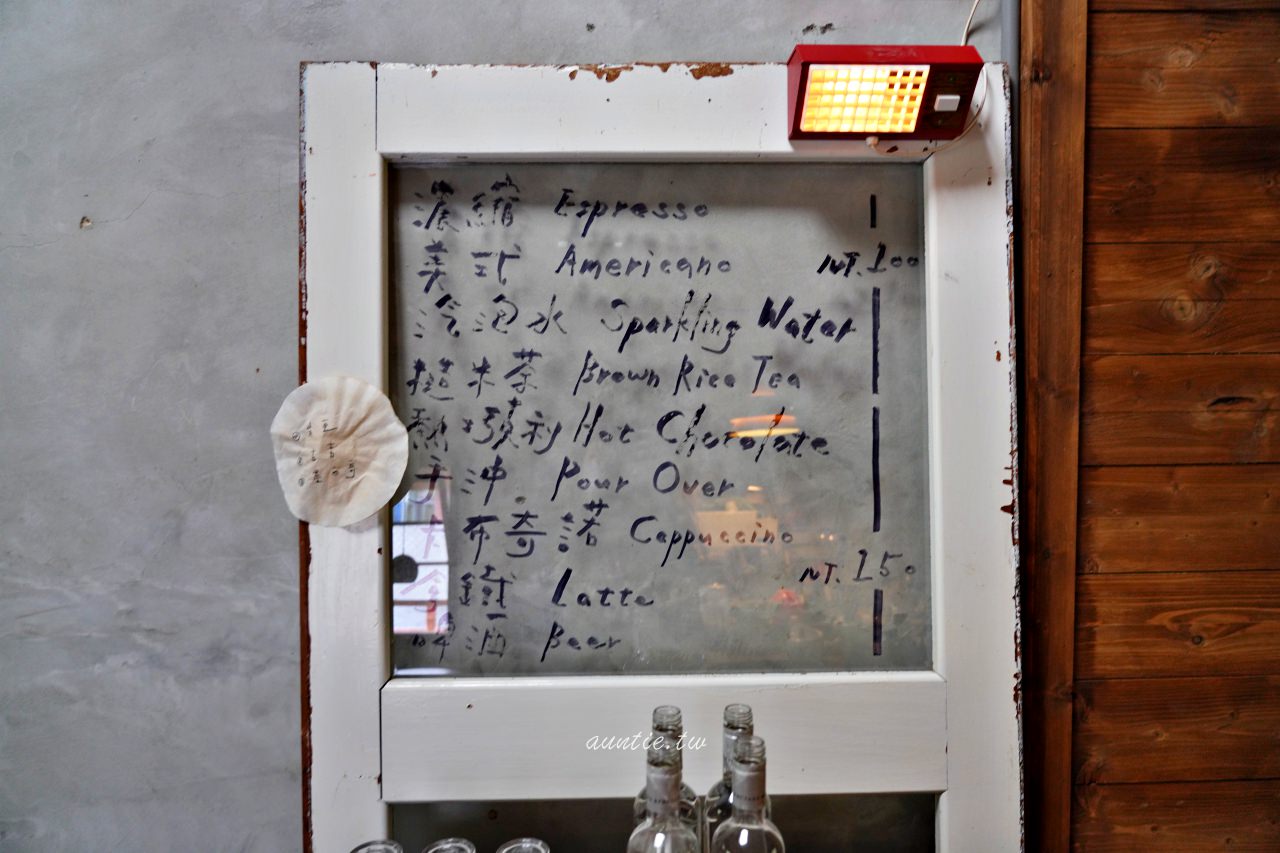 濃縮 Espresso
美式 Americano NT.100
汽泡水 Sparkling Water
糙米茶 Brown Rice Tea
熱巧克利 Hot Chocolate
手沖 Pour Over
卡布奇諾 Cappuccino
拿鐵 Latte NT.150
啤酒 Beer
auntie.tw